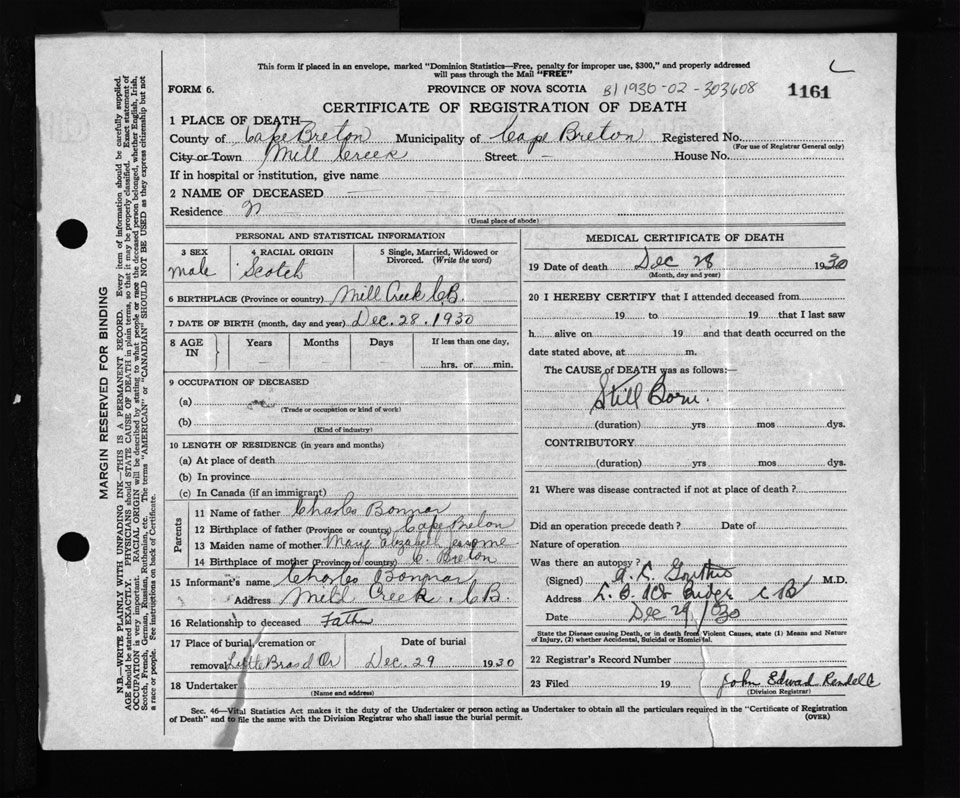 This form if placed in an envelope, marked "Dominion Statistics—Free, penalty for improper use, $300," and properly addressed
will pass through the Mail "FREE"
FORM 6. PROVINCE OF NOVA SCOTIA B1 1930-02-303608 1161
CERTIFICATE OF REGISTRATION OF DEATH
1 PLACE OF DEATH—
County of Cape Breton Municipality of Cape Breton Registered No.
(For use of Registrar General only)
City or Town Mill Creek Street — House No.
If in hospital or institution, give name
2 NAME OF DECEASED
Residence
(Usual place of abode)
PERSONAL AND STATISTICAL INFORMATION
3 SEX 4 RACIAL ORIGIN 5 Single, Married, Widowed or
Divorced. (Write the word)
male Scotch
6 BIRTHPLACE (Province or country) Mill Creek C.B.
7 DATE OF BIRTH (month, day and year) Dec. 28. 1930
8 AGE IN Years Months Days If less than one day,
hrs. or min.
9 OCCUPATION OF DECEASED
(a)
(Trade or occupation or kind of work)
(b)
(Kind of industry)
10 LENGTH OF RESIDENCE (in years and months)
(a) At place of death
(b) In province
(c) In Canada (if an immigrant)
Parents
11 Name of father Charles Bonnar
12 Birthplace of father (Province or country) Cape Breton
13 Maiden name of mother Mary Elizabeth Jerome
14 Birthplace of mother (Province or country) C. Breton
15 Informant's name Charles Bonnar
Address Mill Creek. C.B.
16 Relationship to deceased Father
17 Place of burial, cremation or Date of burial
removal Little Bras d'Or Dec. 29 1930
18 Undertaker
(Name and address)
MEDICAL CERTIFICATE OF DEATH
19 Date of death Dec 28 1930
(Month, day and year)
20 I HEREBY CERTIFY that I attended deceased from
19 to 19 that I last saw
h alive on 19 and that death occurred on the
date stated above, at m.
The CAUSE of DEATH was as follows:—
Still Born.
(duration) yrs mos dys.
CONTRIBUTORY
(duration) yrs mos dys.
21 Where was disease contracted if not at place of death?
Did an operation precede death? Date of
Nature of operation
Was there an autopsy?
(Signed) A. L. M.D.
Address C B
Date Dec 29/030
State the Disease causing Death, or in death from Violent Causes, state (1) Means and Nature
of Injury, (2) whether Accidental, Suicidal or Homicidal.
22 Registrar's Record Number
23 Filed 19 John Edward Rendell
(Division Registrar)
Sec. 46—Vital Statistics Act makes it the duty of the Undertaker or person acting as Undertaker to obtain all the particulars required in the "Certificate of Registration
of Death" and to file the same with the Division Registrar who shall issue the burial permit. (OVER)
MARGIN RESERVED FOR BINDING
N.B.—WRITE PLAINLY WITH UNFADING INK—THIS IS A PERMANENT RECORD. Every item of information should be carefully supplied.
AGE should be stated EXACTLY. PHYSICIANS should STATE CAUSE OF DEATH in plain terms, so that it may be properly classified. Exact statement of
OCCUPATION is very important. RACIAL ORIGIN will be described by stating to what people or race the deceased person belonged, whether English, Irish,
Scotch, French, German, Russian, Ruthenian, etc. The terms "AMERICAN" or "CANADIAN" SHOULD NOT BE USED as they express citizenship but not
a race or people. See instructions on back of Certificate.